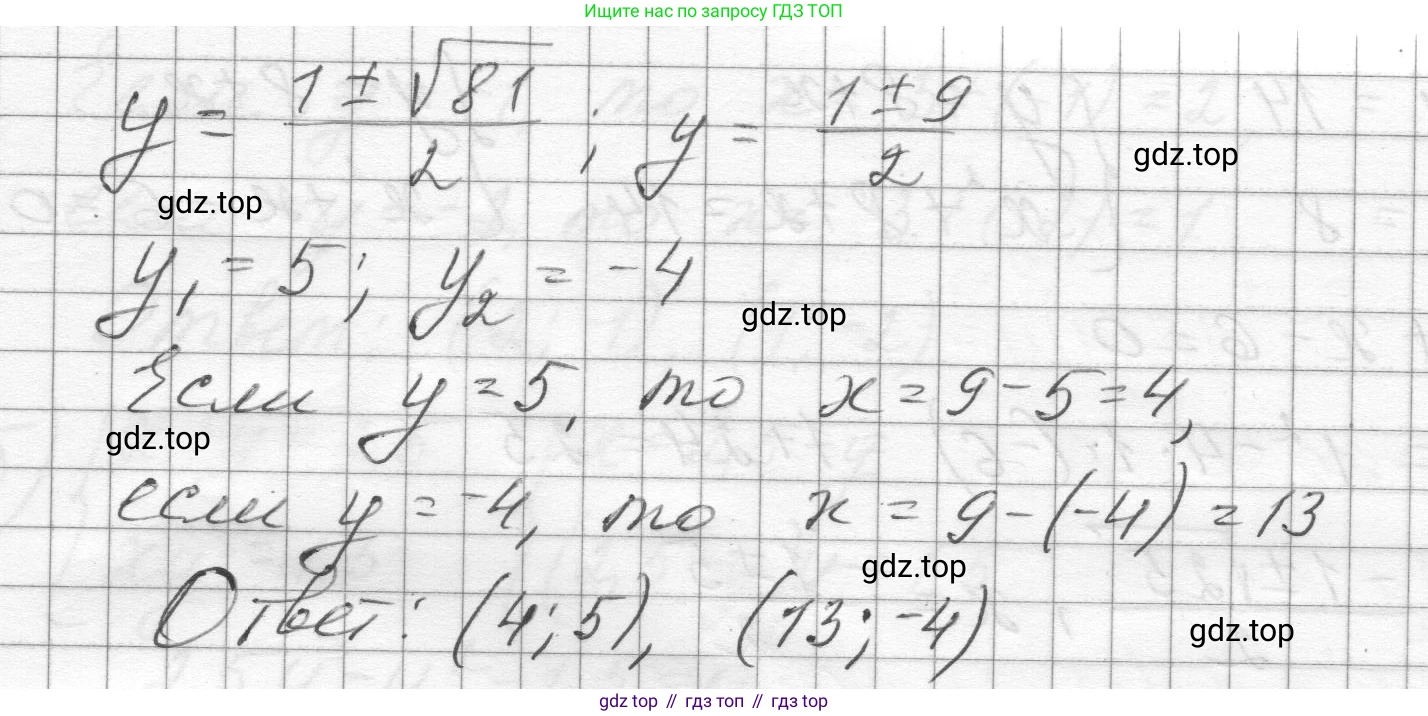 Ищите нас по запросу ГДЗ ТОП
y = (1 ± √81)/2 ; y = (1 ± 9)/2
gdz.top
gdz.top
y₁ = 5; y₂ = -4
gdz.top
Если y = 5, то x = 9 - 5 = 4,
gdz.top
если y = -4, то x = 9 - (-4) = 13
gdz.top
Ответ: (4; 5), (13; -4)
gdz.top
gdz top // гдз топ // гдз top